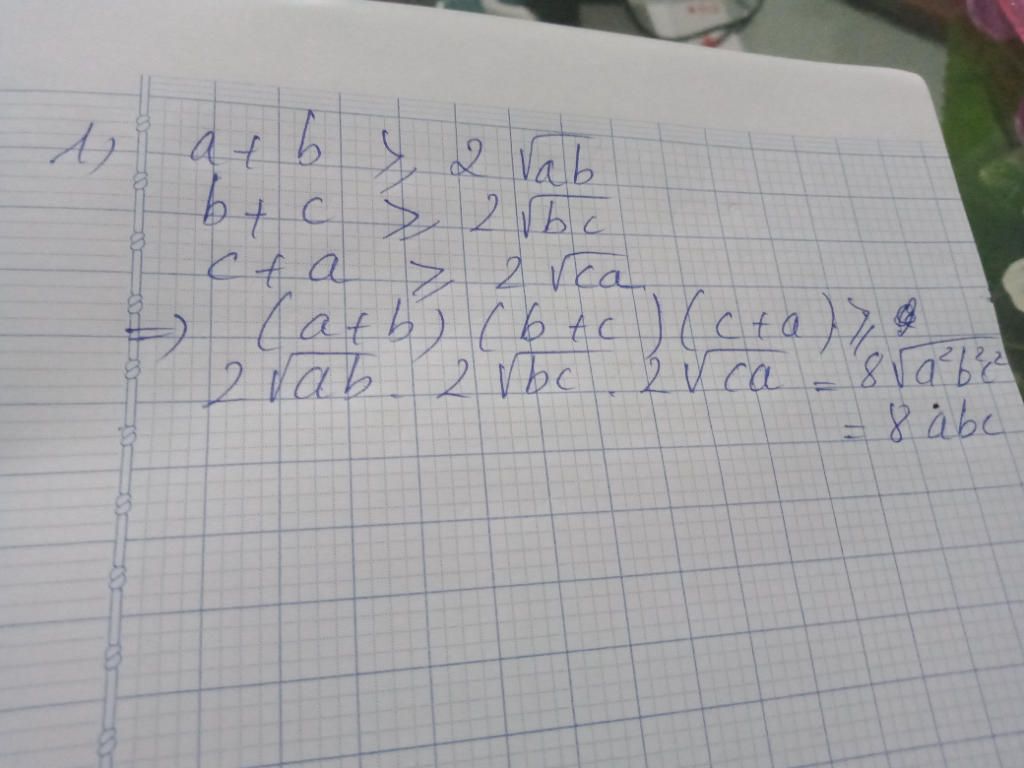 1) a + b ≥ 2 √ab
b + c ≥ 2 √bc
c + a ≥ 2 √ca
=> (a+b) (b+c) (c+a) ≥
2√ab . 2√bc . 2√ca = 8√a²b²c²
= 8 abc